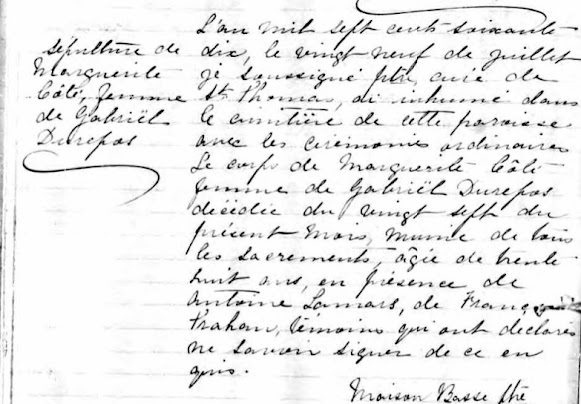 sépulture de
Marguerite
Côté, femme
de Gabriël
Durepos
L'an mil sept cents soixante
dix, le vingt neuf de juillet
je soussigné ptre curé de
St Thomas, ai inhumé dans
le cimetière de cette paroisse
avec les cérémonies ordinaires
Le corps de Marguerite Côté
femme de Gabriël Durepos
décédée du vingt sept du
présent mois, munie de tous
les sacrements, âgée de trente
huit ans, en présence de
antoine Lamars, de Franç
Trahan, témoins qui ont déclarés
ne savoir signer de ce en
quis.
Maison Basse ptre